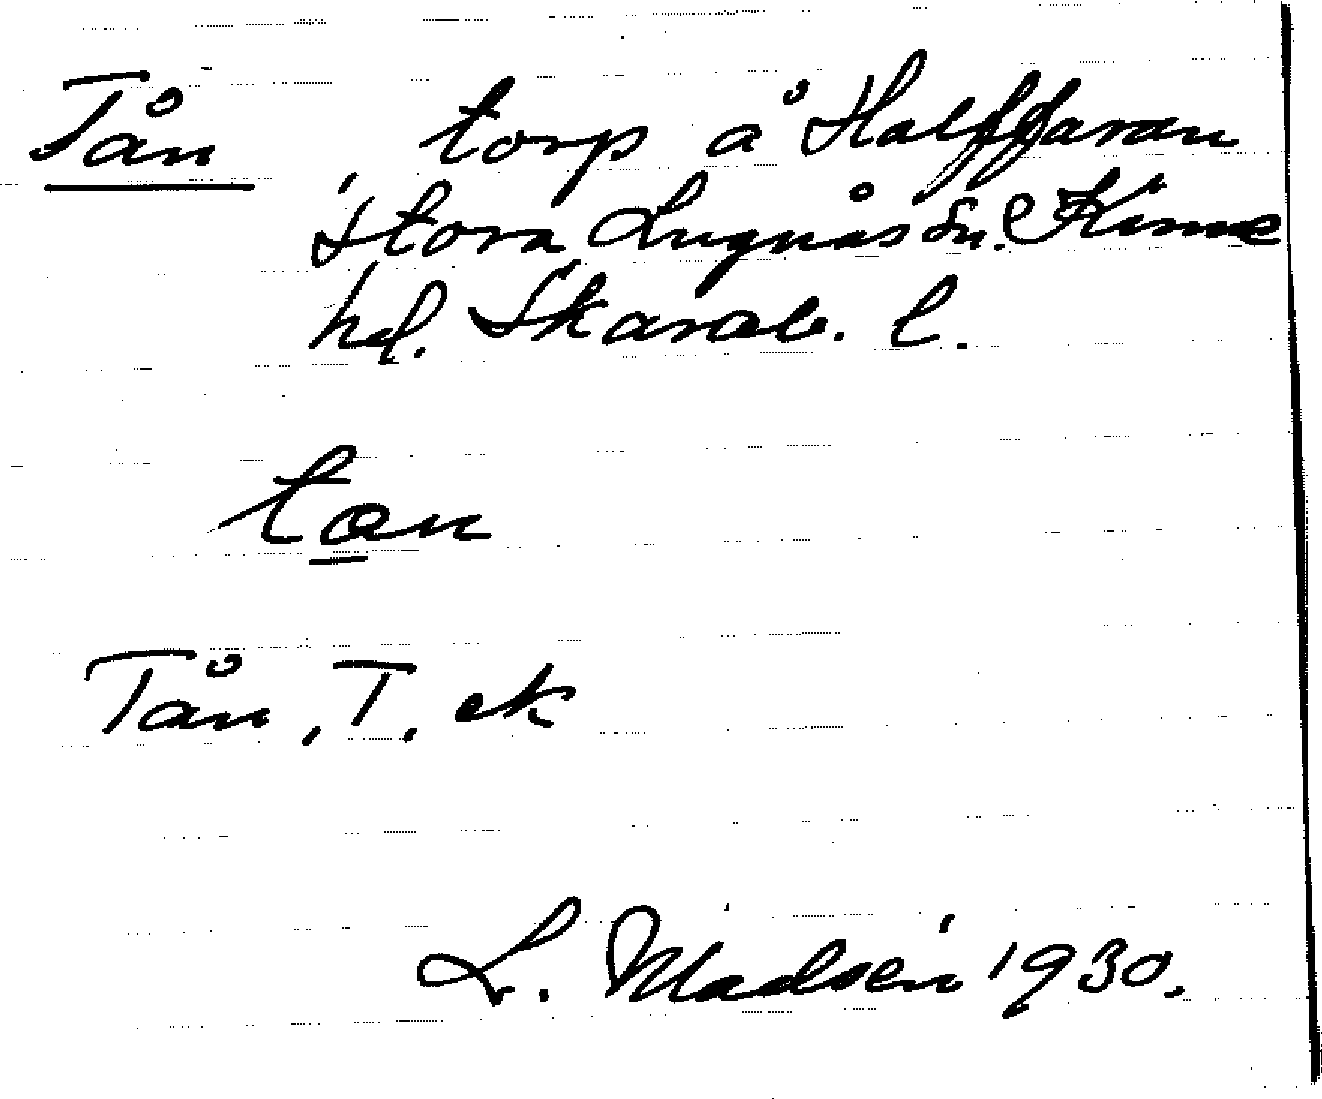 Tån, torp å Halffaran
Stora Lugnås sn. Kinne
hd. Skarab. l.
tan
Tån, T. ek
L. Madsén 1930.